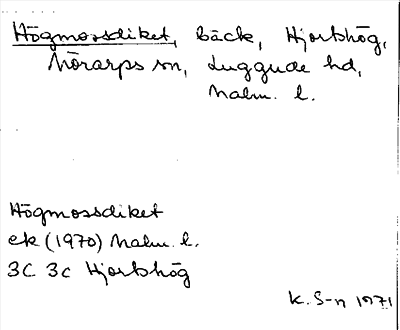 Högmossdiket, bäck, Hjortshög,
Mörarps sn, Luggude hd,
Malm. l.
Högmossdiket
ek (1970) Malm. l.
3C 3c Hjortshög
K. S-n 1971